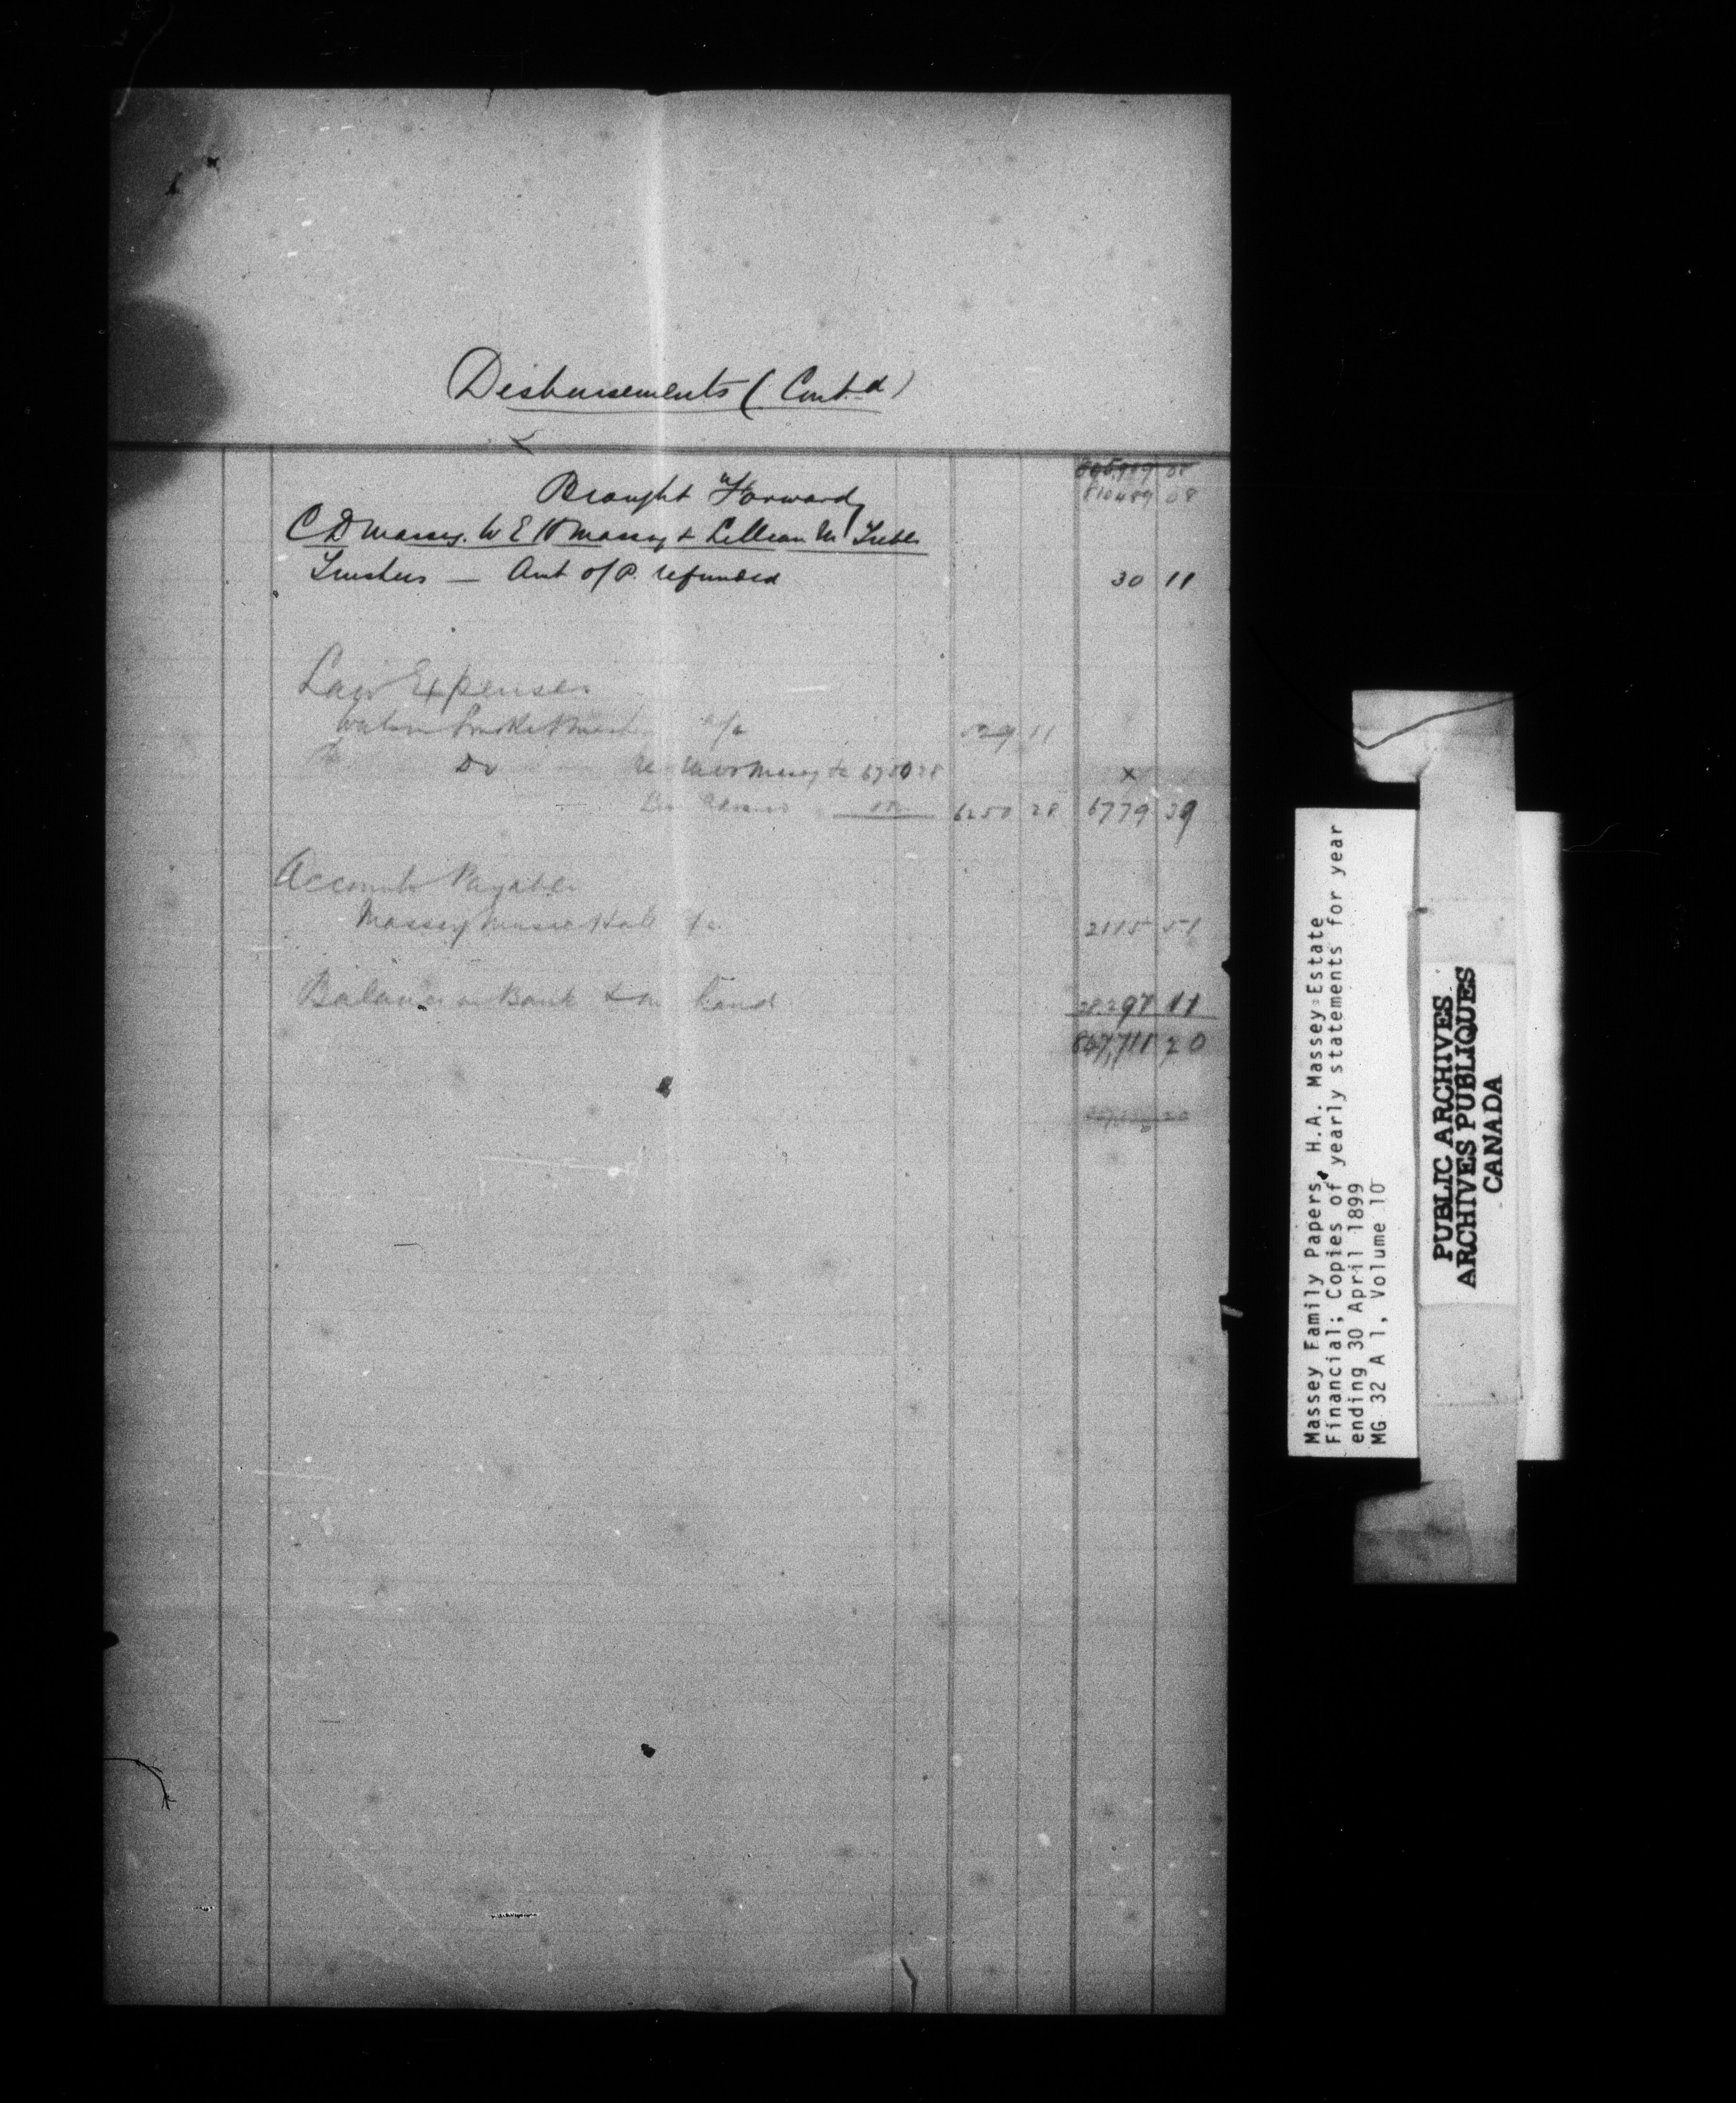 Disbursements (Cont.d)
Brought Forward
810489 08
C D Massey. W E H Massey & Lillian M Treble
Trustees — Amt o/P. refunded 30 11
Law Expenses
a/c 29 11
Do Re Massey 6750 28
6250 28 6779 39
Accounts Payable
Massey Music Hall a/c 2115 51
Balance in Bank & on hand 28297 11
847,711 20
Massey Family Papers, H.A. Massey Estate
Financial; Copies of yearly statements for year
ending 30 April 1899
MG 32 A 1, Volume 10
PUBLIC ARCHIVES
ARCHIVES PUBLIQUES
CANADA